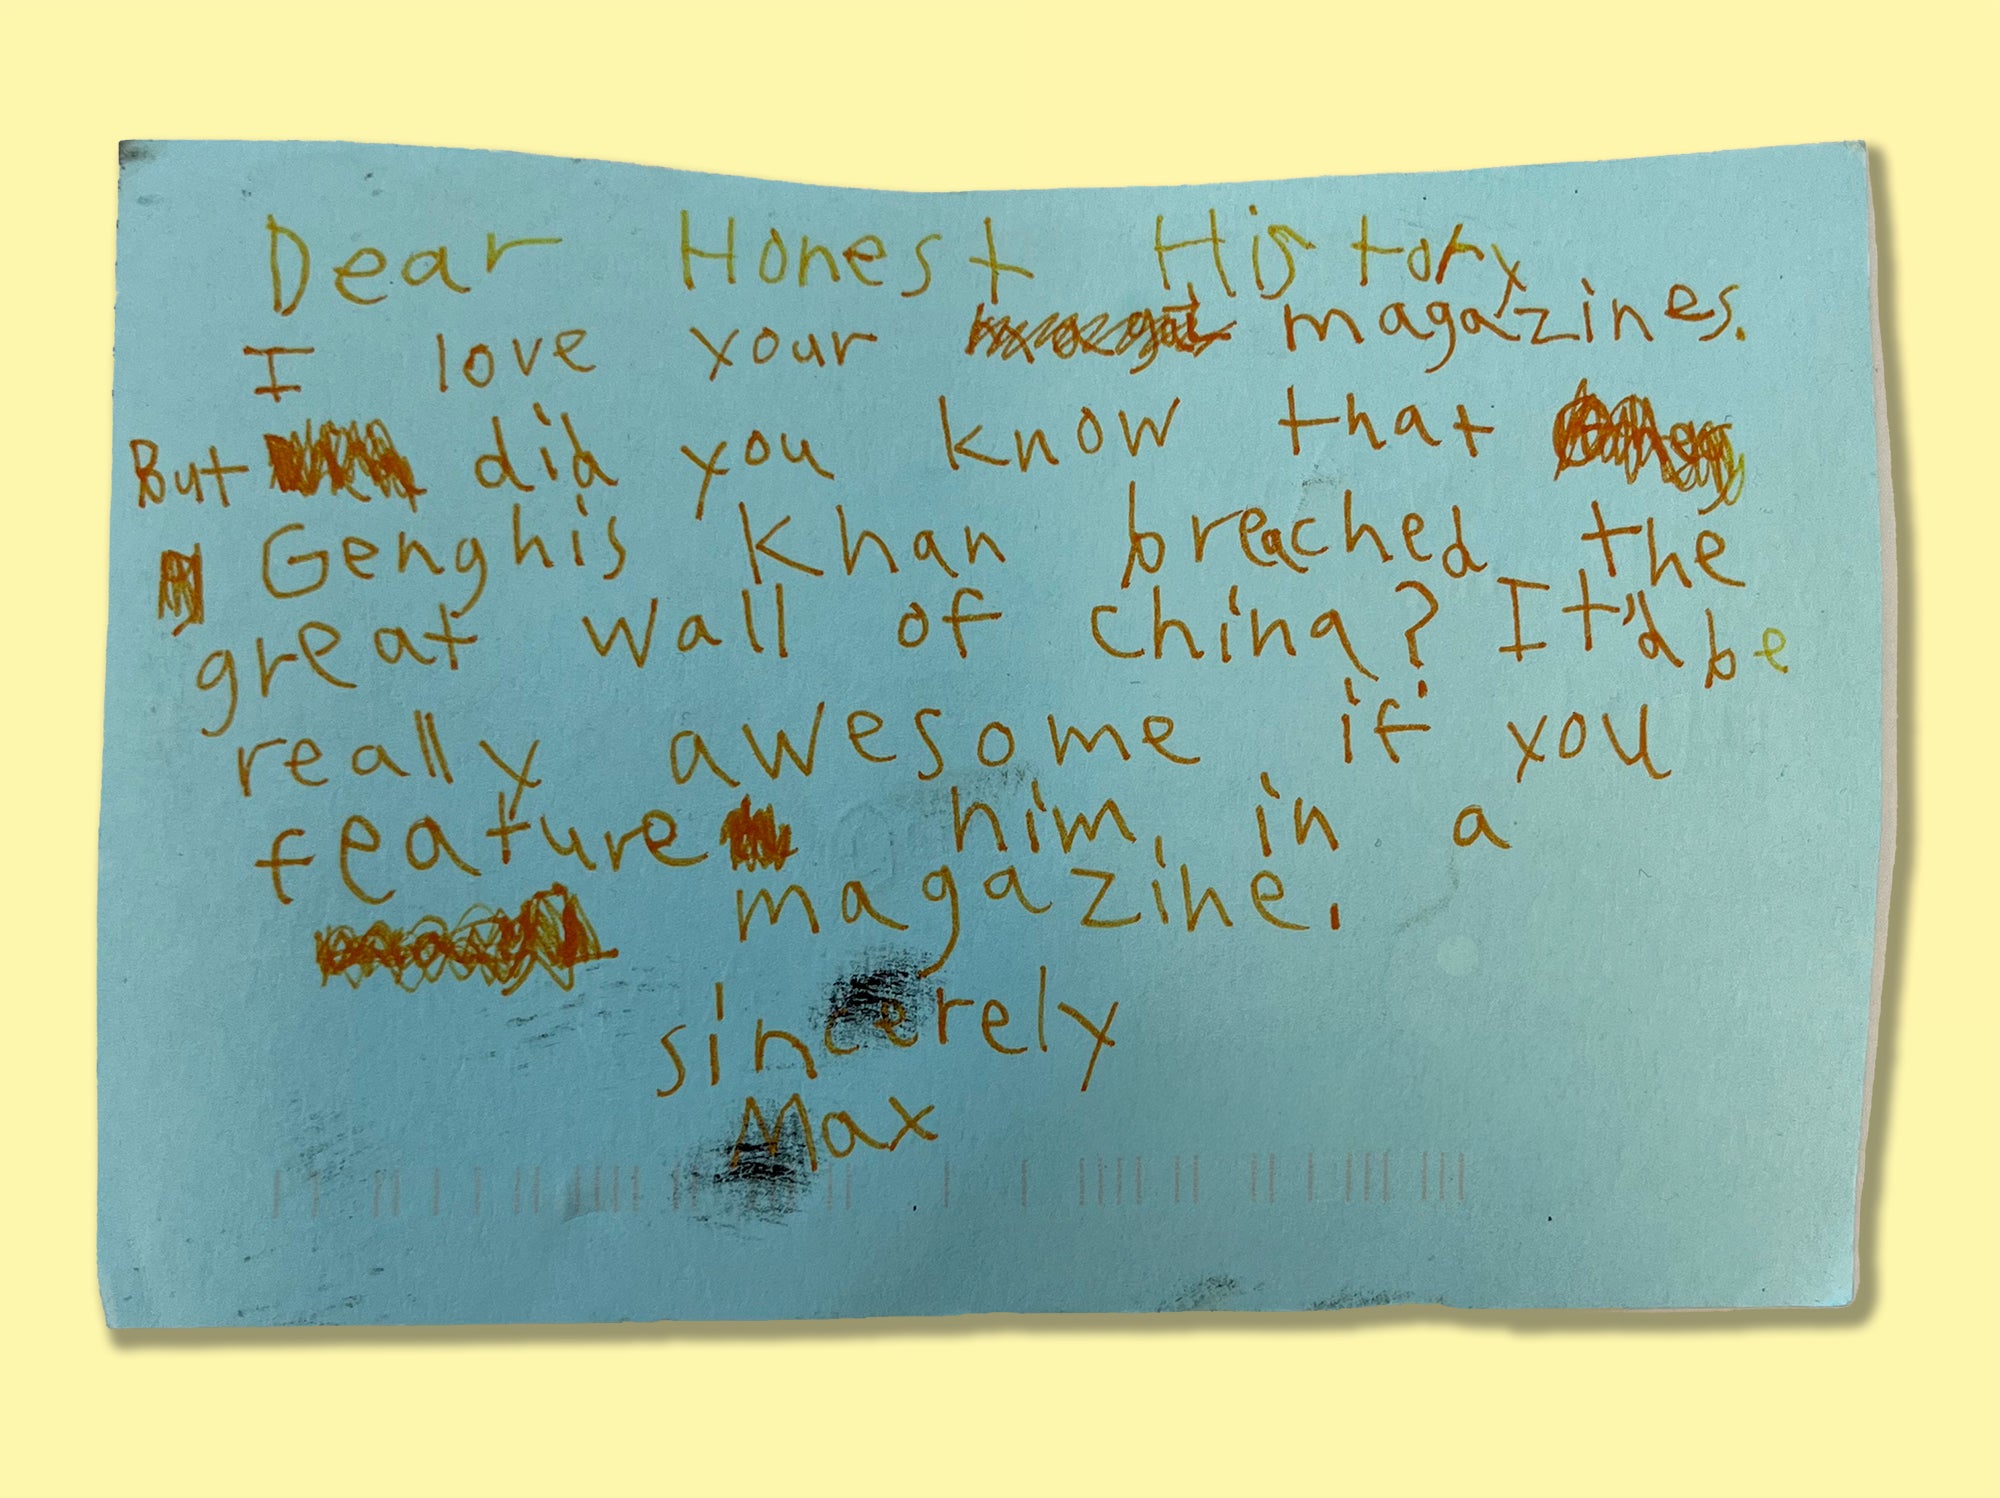 Dear Honest History
I love your magazines.
But did you know that
Genghis Khan breached the
great wall of china? It'd be
really awesome if you
feature him, in a
magazine.
sincerely
Max